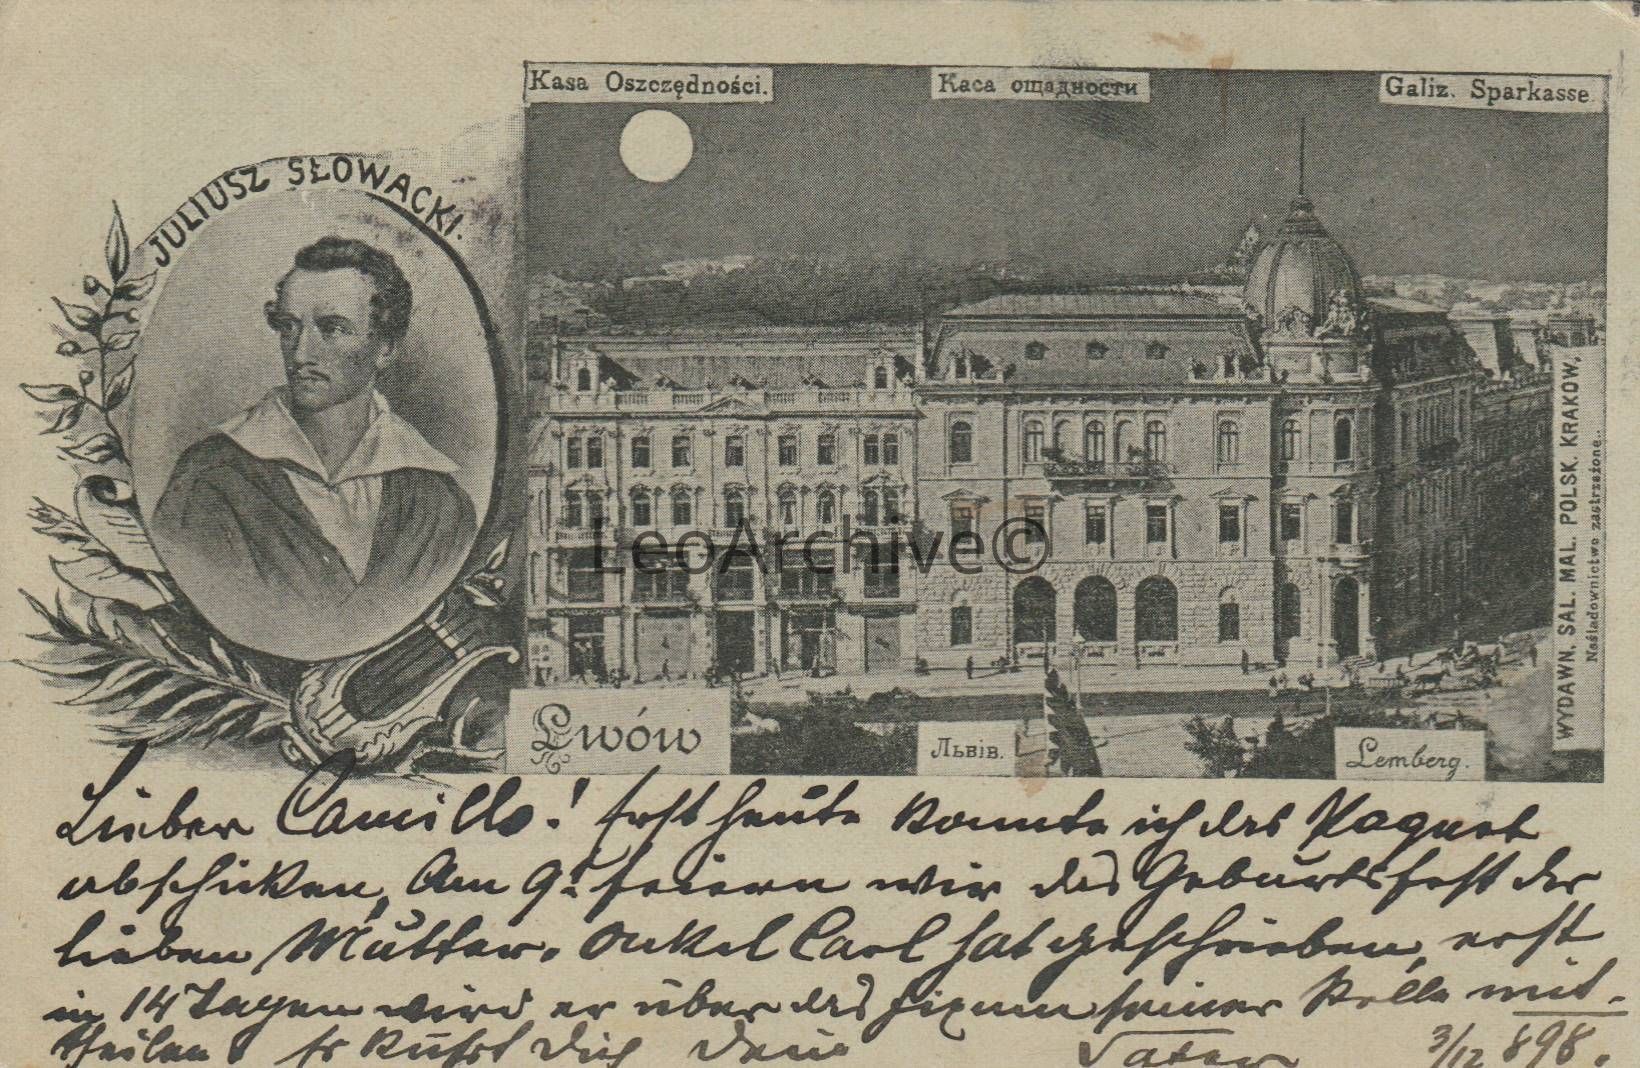 Kasa Oszczędności.
Каса ощадности
Galiz. Sparkasse.
JULIUSZ SŁOWACKI.
WYDAWN. SAL. MAL. POLSK. KRAKÓW.
Naśladownictwo zastrzeżone.
LeoArchive©
Lwów
Львів.
Lemberg.
Lieber Camillo! Erst heute konnte ich das Paquet
abschicken, Am 9t feiern wir das Geburtsfest der
lieben Mutter. Onkel Carl hat geschrieben, erst
in 14 Tagen wird er über das Fixum seiner Stelle mit-
theilen. Es küsst Dich Dein Vater 3/12 898.